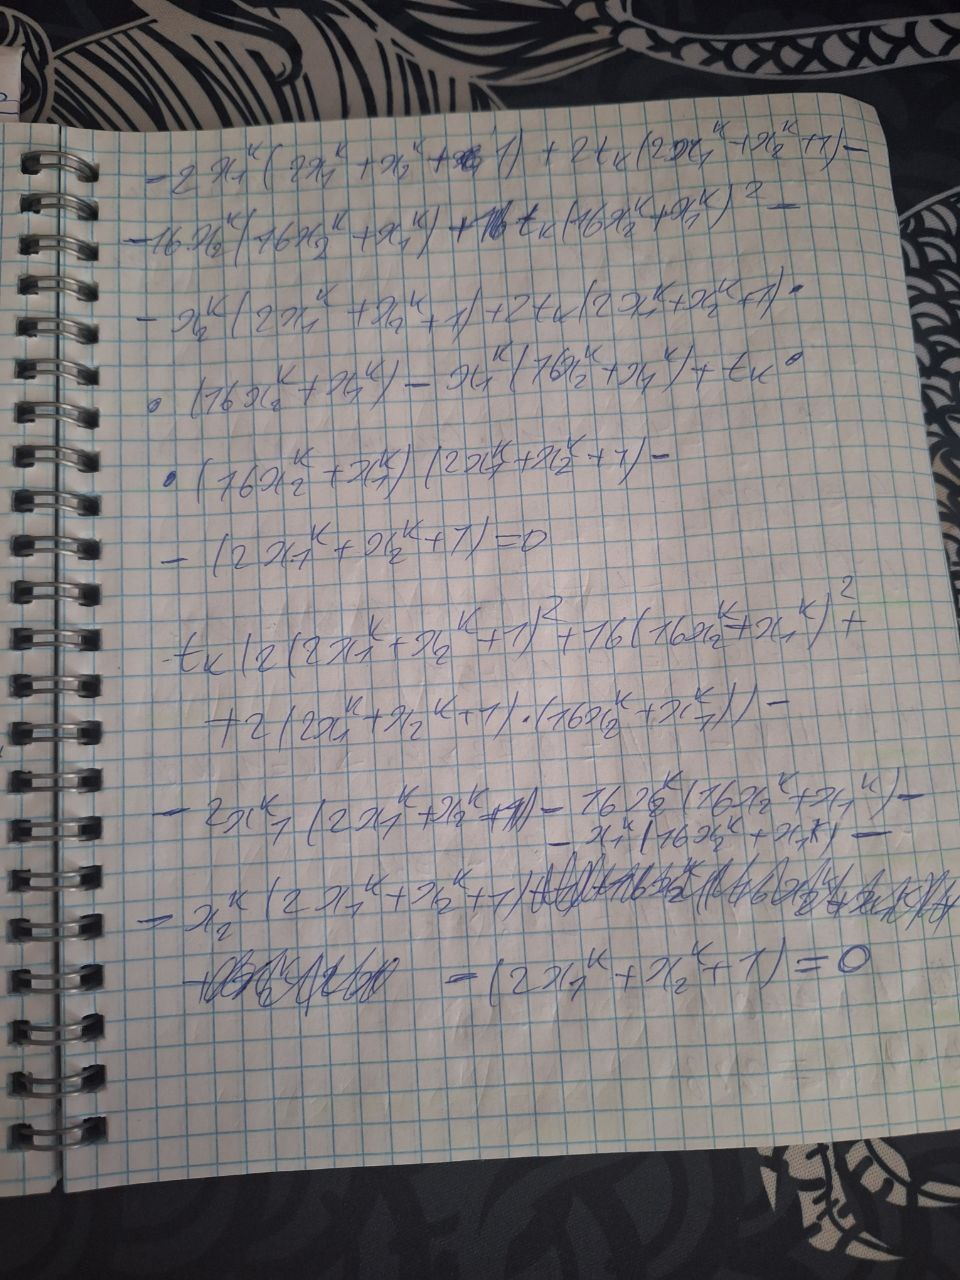 - 2x₁ᵏ(2x₁ᵏ + x₂ᵏ + 1) + 2tₖ(2x₁ᵏ + x₂ᵏ + 1) -
- 16x₂ᵏ(16x₂ᵏ + x₁ᵏ) + 16tₖ(16x₂ᵏ + x₁ᵏ)² -
- x₂ᵏ(2x₁ᵏ + x₂ᵏ + 1) + 2tₖ(2x₁ᵏ + x₂ᵏ + 1) ·
· (16x₂ᵏ + x₁ᵏ) - x₁ᵏ(16x₂ᵏ + x₁ᵏ) + tₖ ·
· (16x₂ᵏ + x₁ᵏ)(2x₁ᵏ + x₂ᵏ + 1) -
- (2x₁ᵏ + x₂ᵏ + 1) = 0
tₖ(2(2x₁ᵏ + x₂ᵏ + 1)² + 16(16x₂ᵏ + x₁ᵏ)² +
+ 2(2x₁ᵏ + x₂ᵏ + 1) · (16x₂ᵏ + x₁ᵏ)) -
- 2x₁ᵏ(2x₁ᵏ + x₂ᵏ + 1) - 16x₂ᵏ(16x₂ᵏ + x₁ᵏ) -
- x₁ᵏ(16x₂ᵏ + x₁ᵏ) -
- x₂ᵏ(2x₁ᵏ + x₂ᵏ + 1)
- (2x₁ᵏ + x₂ᵏ + 1) = 0